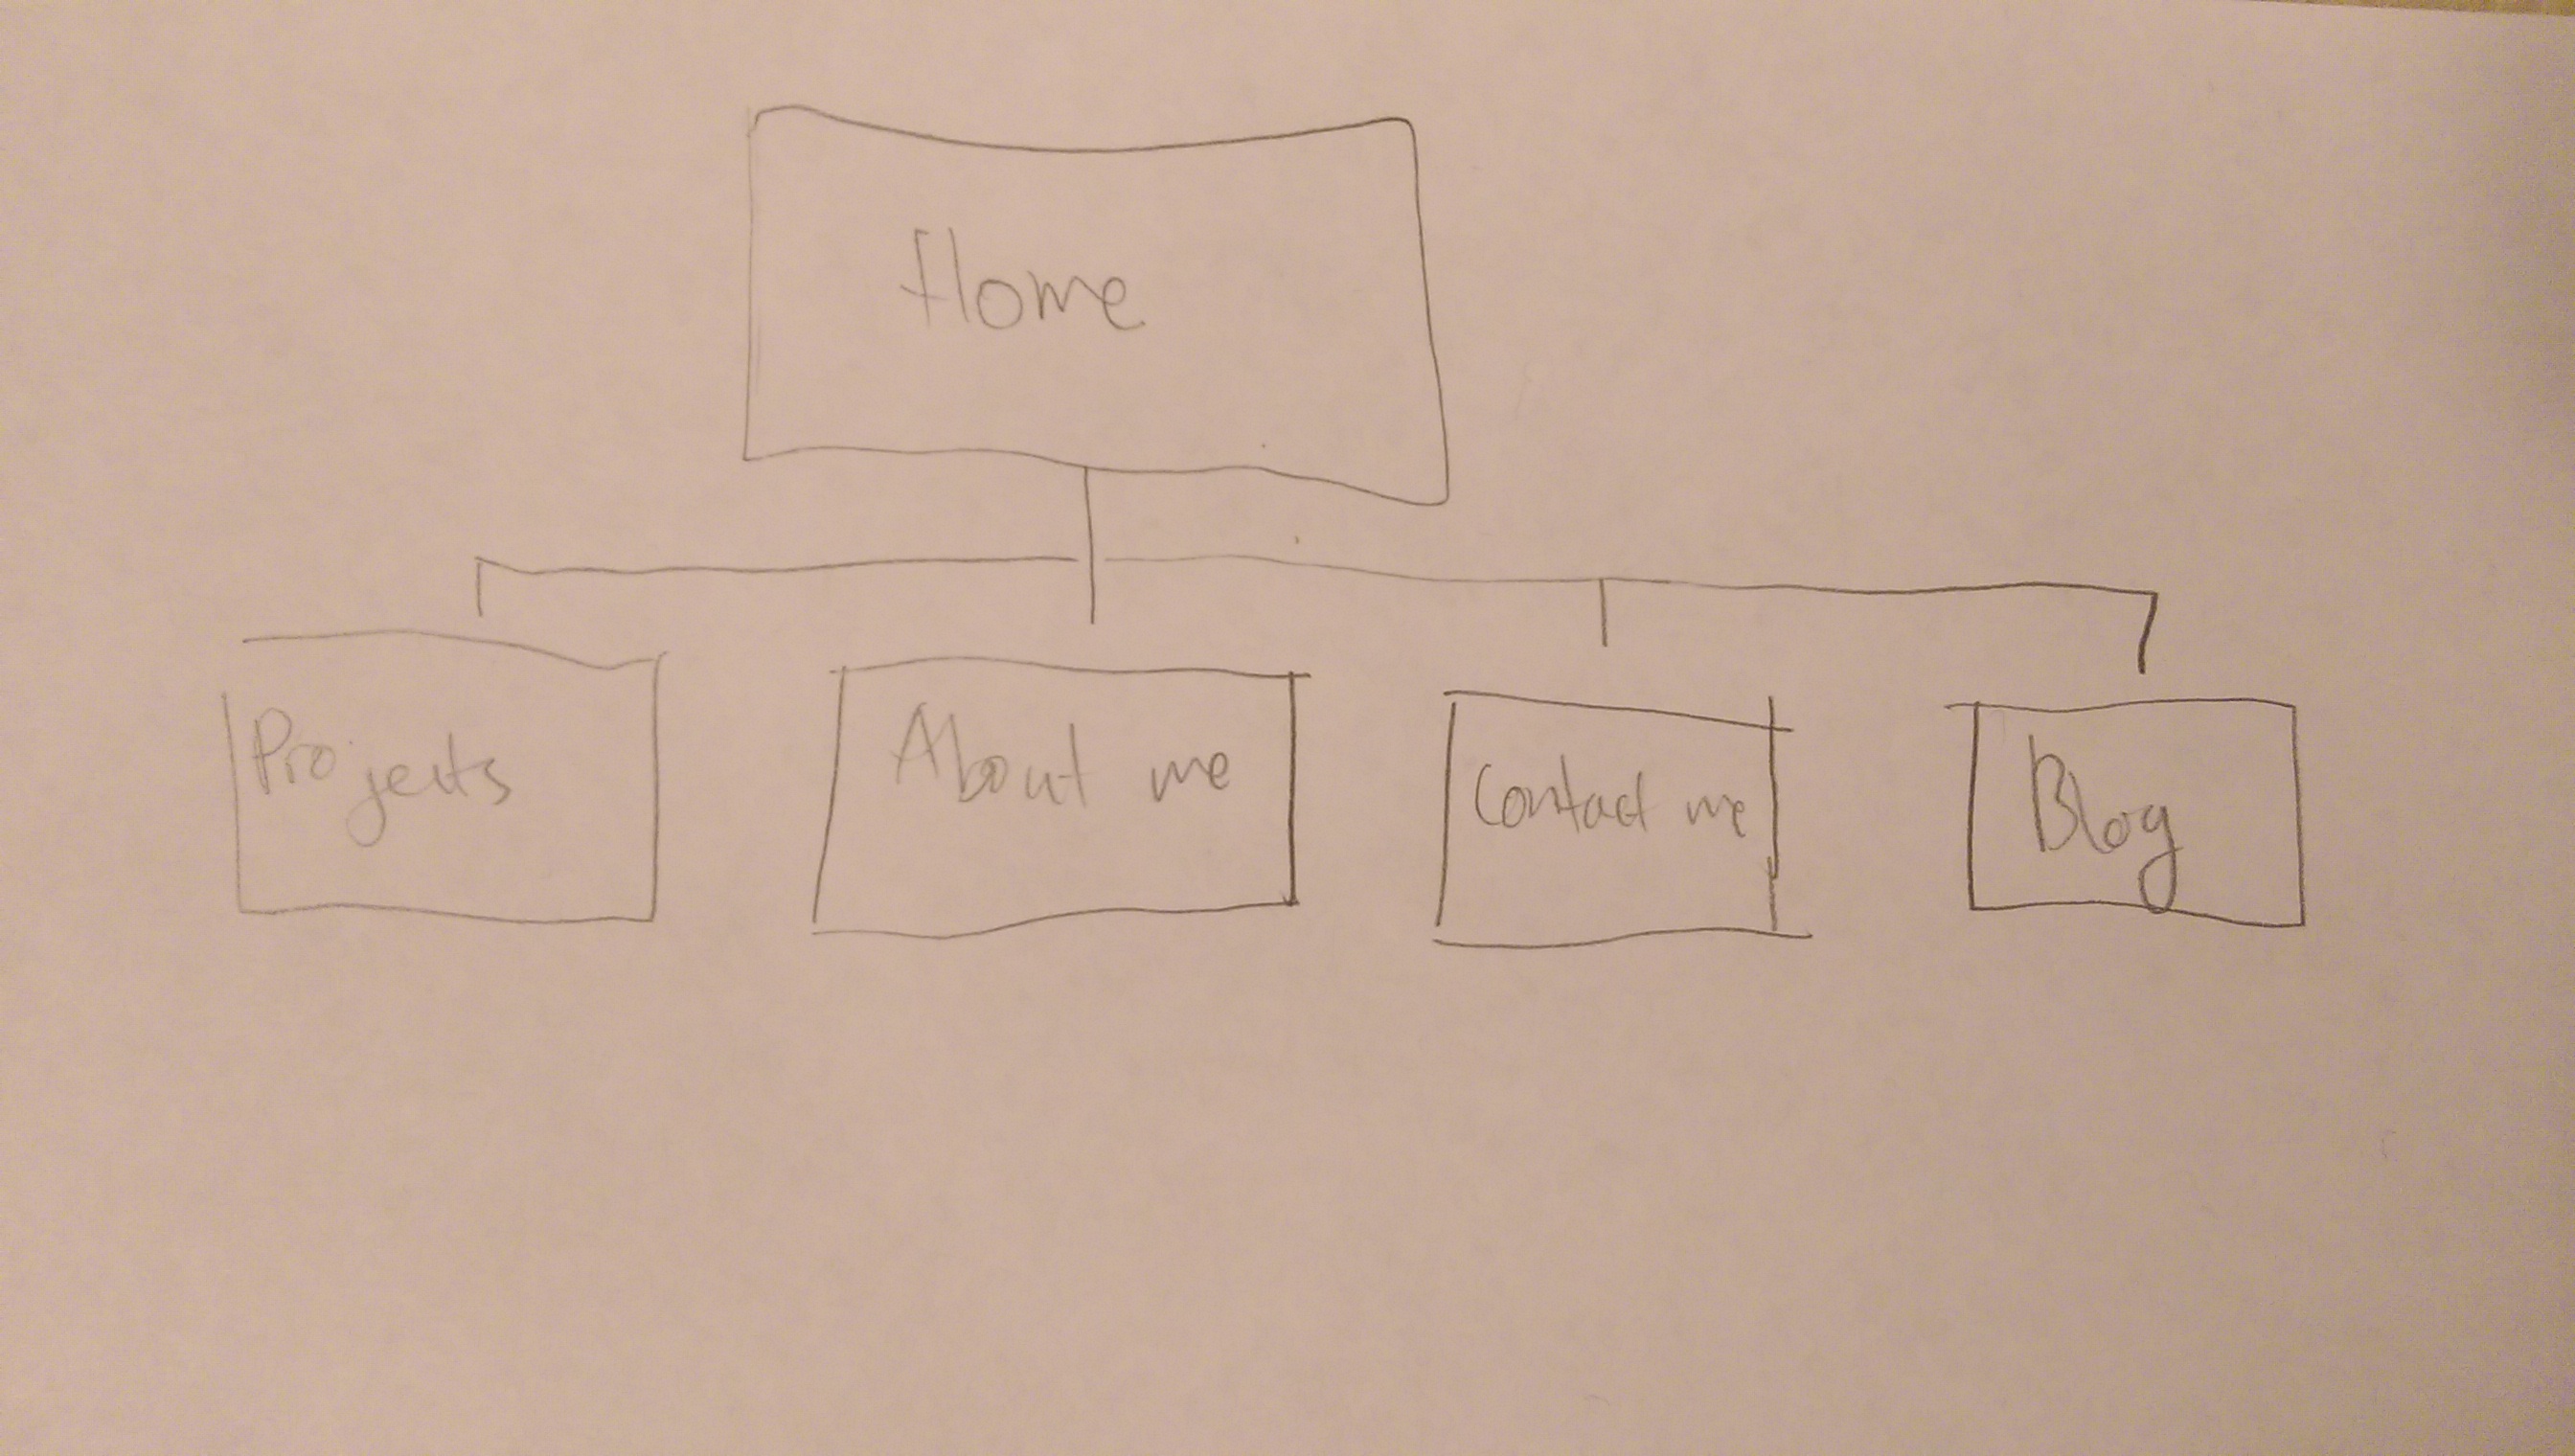 Home
Projects
About me
Contact me
Blog